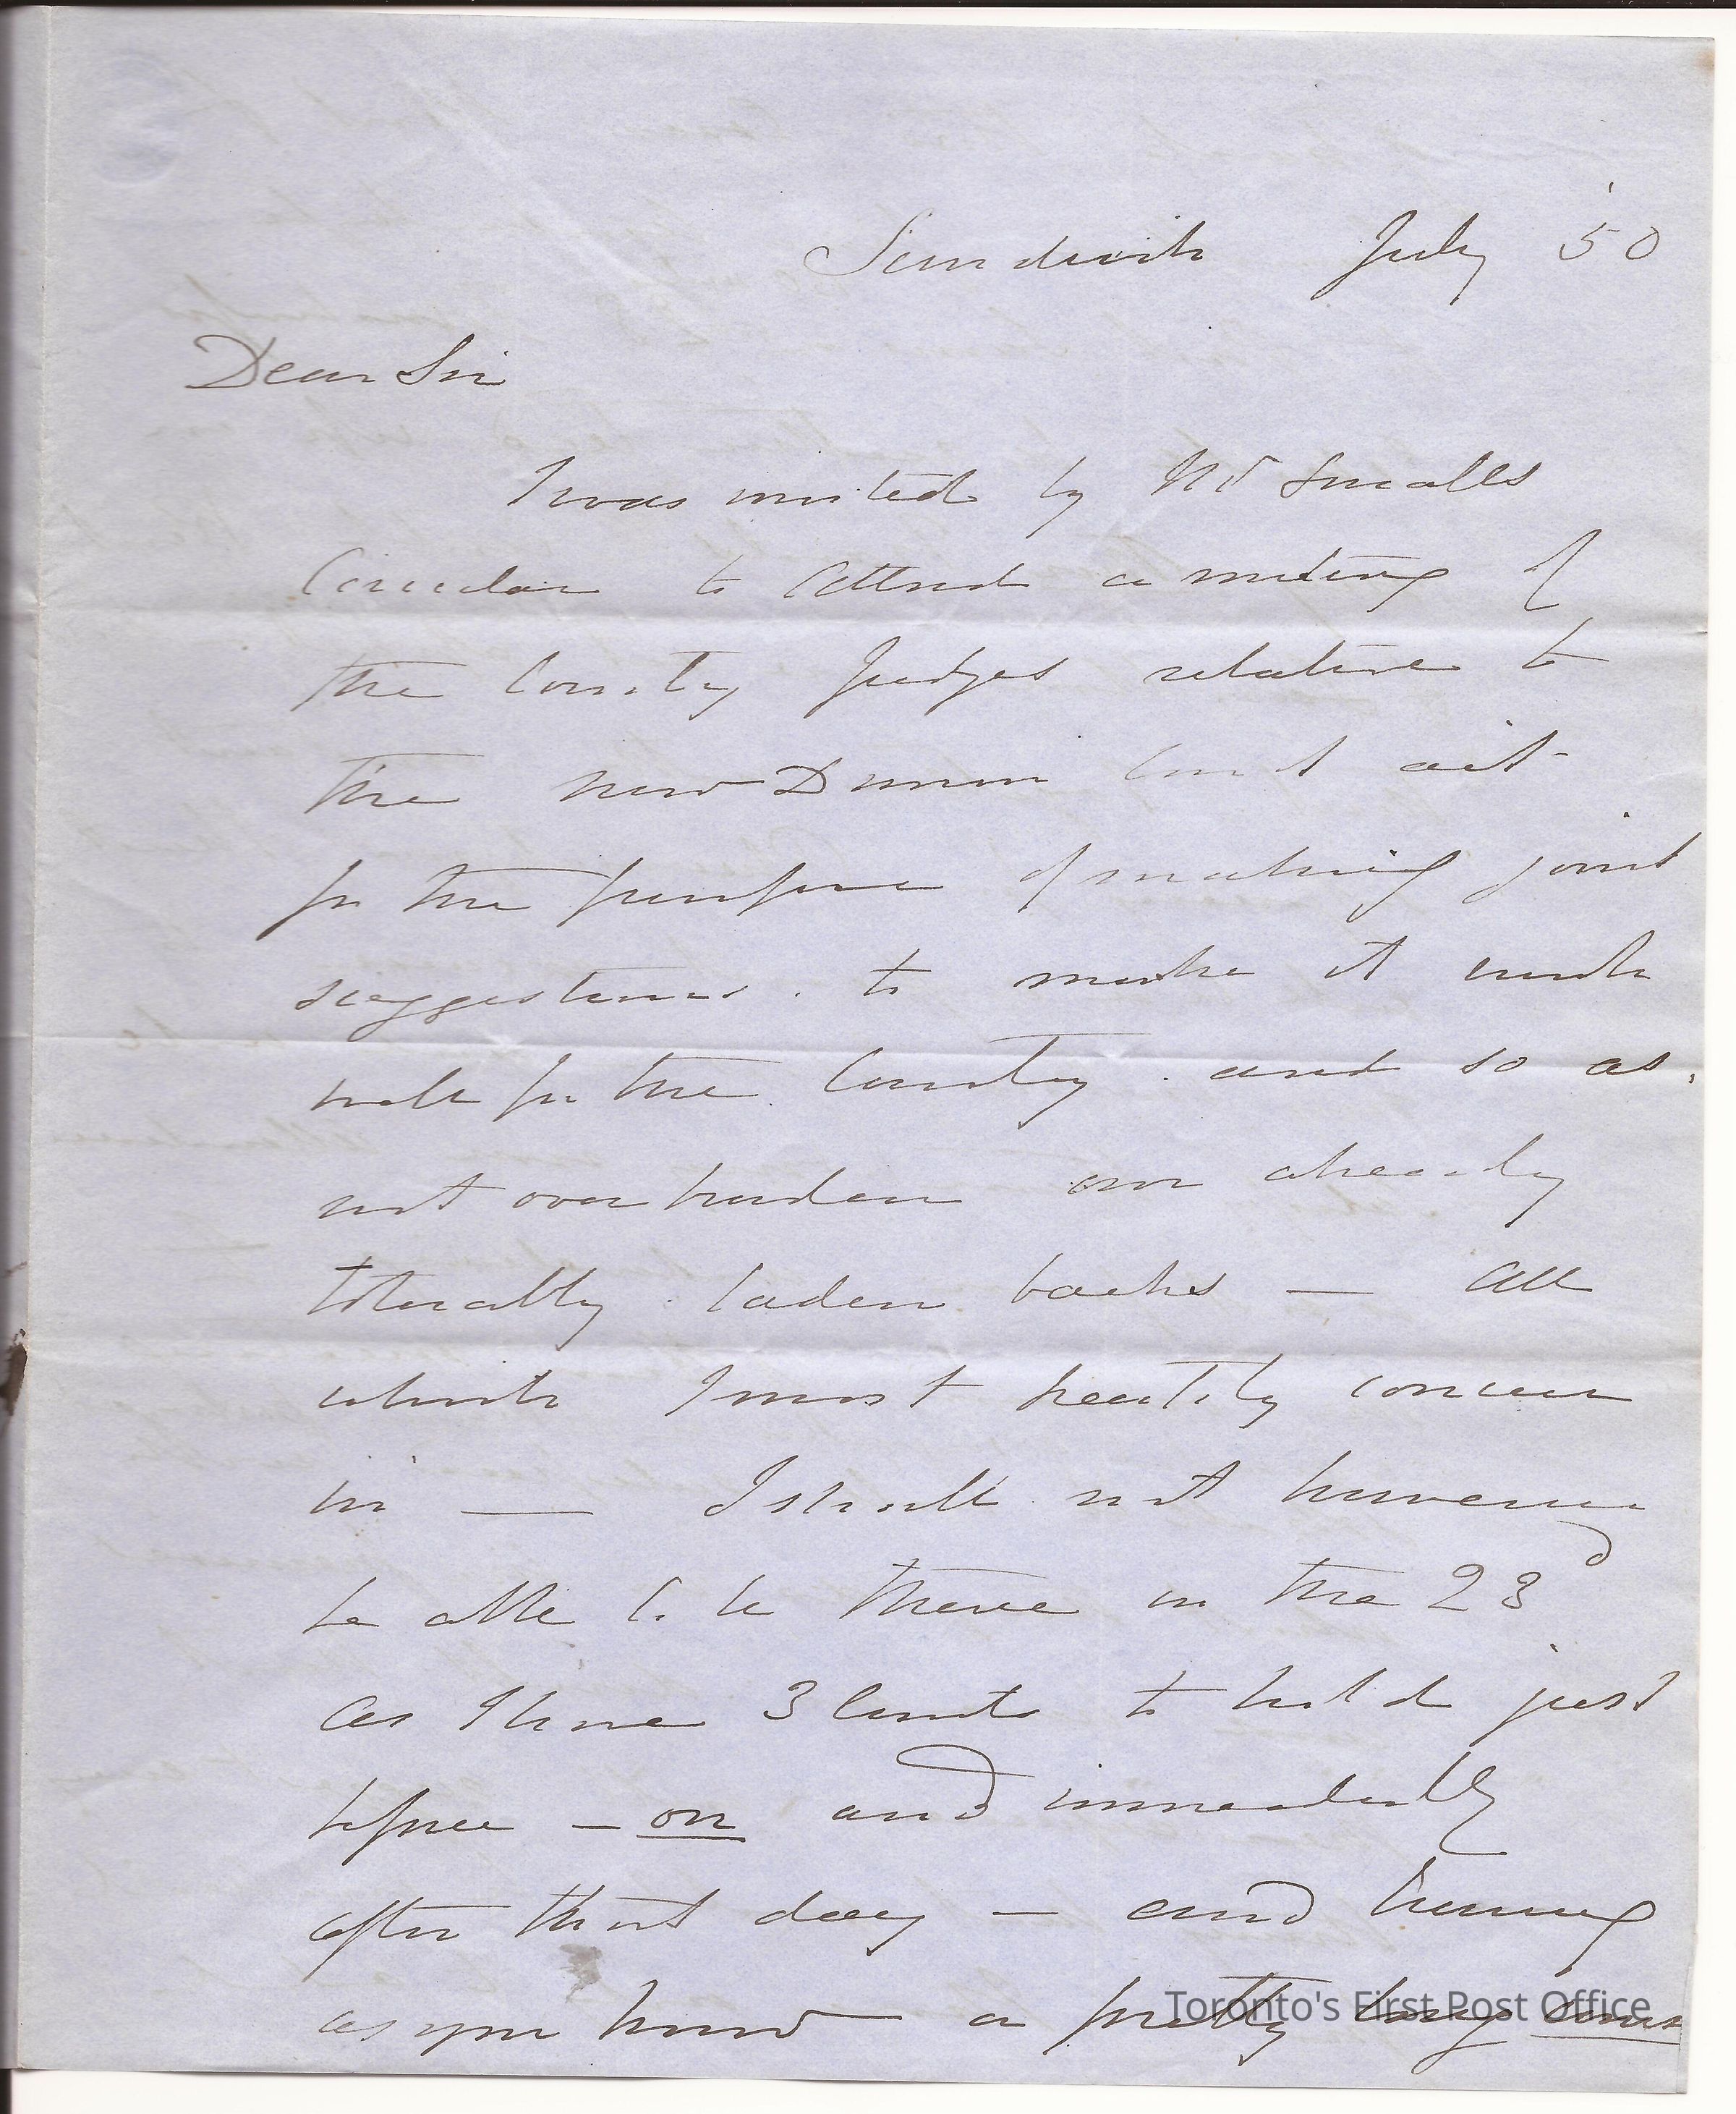 Sandwich July '50
Dear Sir
I was invited by Mr Smalls
Circular to attend a meeting of
the County Judges relative to
the new Division Court act
for the purpose of making joint
suggestions. to make it work
well for the County. and so as
not over burden our already
tolerably laden backs — all
which I most heartily concur
in — I shall not however
be able to be there on the 23d
as I have 3 Courts to hold just
before — on and immediately
after that day — and having
as you know a pretty long
Toronto's First Post Office